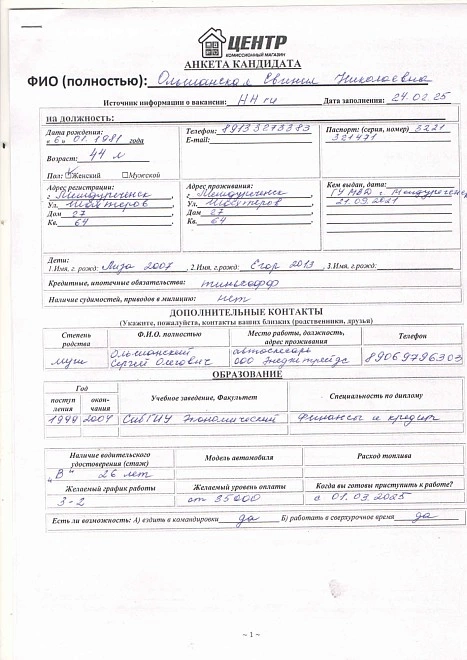 ЦЕНТР
КОМИССИОННЫЙ МАГАЗИН
АНКЕТА КАНДИДАТА
ФИО (полностью): Ольшанская Евгения Николаевна
Источник информации о вакансии: НН ru Дата заполнения: 24.02.25
на должность:
Дата рождения: Телефон: 89133273383 Паспорт: (серия, номер) 3221
«6» 01 1981 года E-mail: 321471
Возраст: 44 л
Пол: Женский Мужской
Адрес регистрации: Адрес проживания: Кем выдан, дата:
г. Междуреченск г. Междуреченск ГУ МВД г. Междуреченск
Ул. Шахтеров Ул. Шахтеров 21.09.2021
Дом 27 Дом 27
Кв. 64 Кв. 64
Дети:
1.Имя. г. рожд: Лиза 2007, 2.Имя. г.рожд: Егор 2013, 3.Имя. г.рожд:
Кредитные, ипотечные обязательства: тинькофф
Наличие судимостей, приводов в милицию: нет
ДОПОЛНИТЕЛЬНЫЕ КОНТАКТЫ
(Укажите, пожалуйста, контакты ваших близких (родственники, друзья)
Степень родства Ф.И.О. полностью Место работы, должность, адрес проживания Телефон
муж Ольшанский Сергей Олегович автослесарь ООО 89069796303
ОБРАЗОВАНИЕ
Год Учебное заведение, Факультет Специальность по диплому
поступления окончания
1999 2004 СибГИУ Экономический Финансы и кредит
Наличие водительского удостоверения (стаж) Модель автомобиля Расход топлива
"В" 26 лет
Желаемый график работы Желаемый уровень оплаты Когда вы готовы приступить к работе?
3-2 от 35000 с 01.03.2025
Есть ли возможность: А) ездить в командировки да Б) работать в сверхурочное время да
~ 1 ~